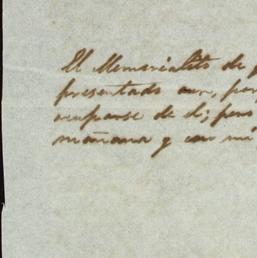 El Memorialito de
presentado aun, por
ocuparse de él; pero
mañana y con mi